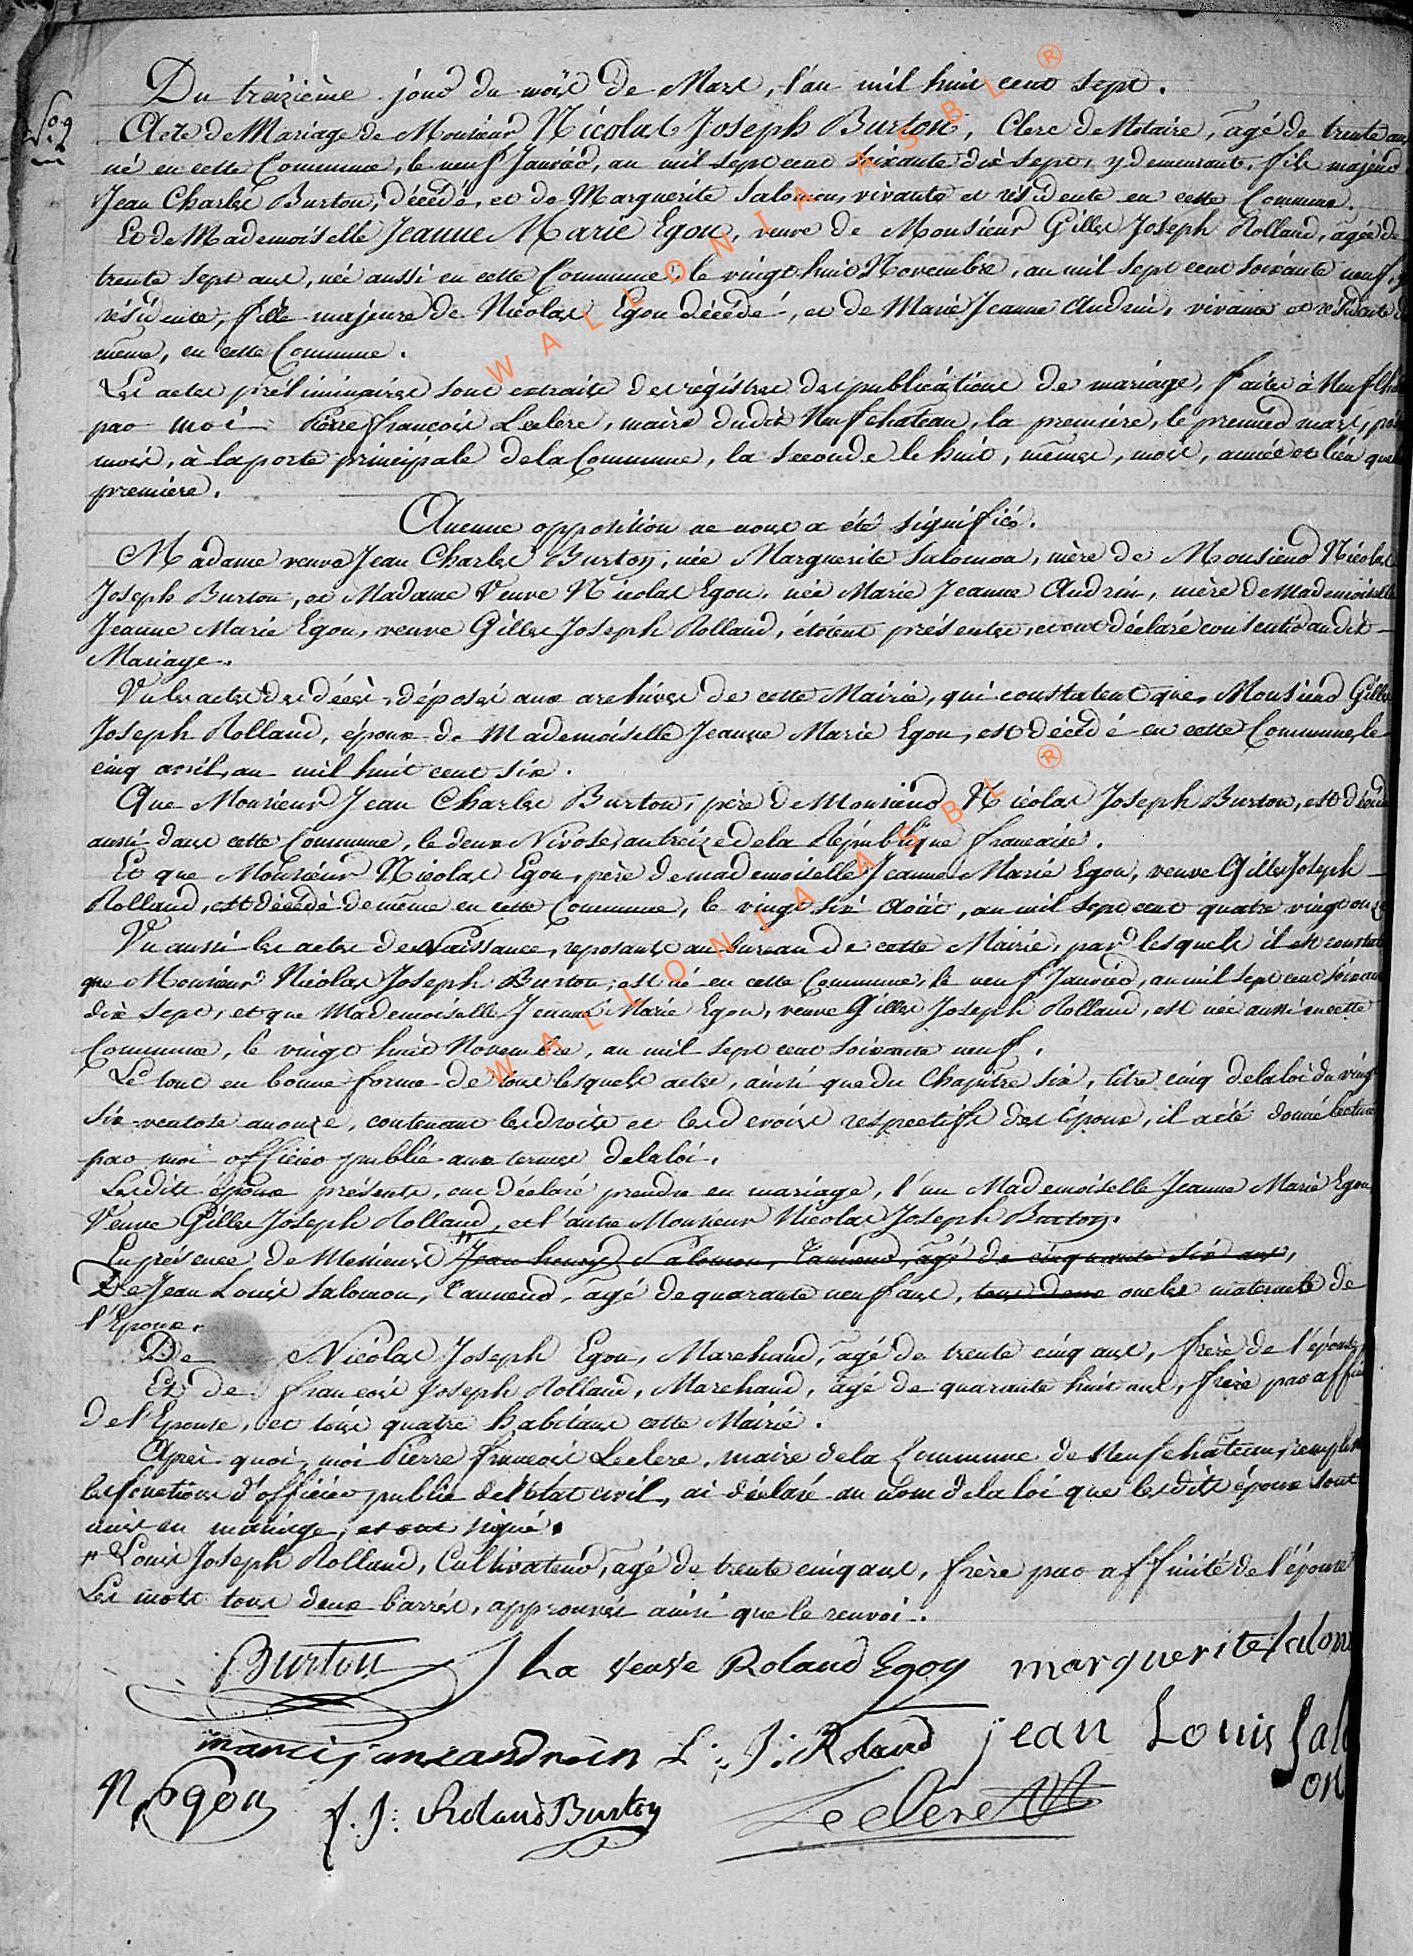 Du treizième jour du mois de Mars, l'an mil huit cent sept.
No. 2
Acte de Mariage de Monsieur Nicolas Joseph Burton, Clerc de Notaire, agé de trente ans
né en cette Commune, le neuf Janvier, an mil sept cent soixante dix sept, y demeurant, fils majeur
Jean Charles Burton, décédé, et de Marguerite Salomon, vivante et résidente en cette Commune.
Et de Mademoiselle Jeanne Marie Egon, veuve de Monsieur Gilles Joseph Rolland, agée de
trente sept ans, née aussi en cette Commune, le vingt huit Novembre, an mil sept cent soixante neuf, y
résidente, fille majeure de Nicolas Egon décédé, et de Marie Jeanne Audrin, vivante et résidente de
même, en cette Commune.
Les actes préliminaires sont extraits des régistres des publications de mariage, faites à Neufchâ
par moi Pierre françois Leclere, maire dudit Neufchateau, la première, le premier mars,
mois, à la porte principale de la Commune, la seconde le huit, mêmes, mois, année et lieu que la
première.
Aucune opposition ne nous a été signifiée.
Madame veuve Jean Charles Burton, née Marguerite Salomon, mère de Monsieur Nicolas
Joseph Burton, et Madame Veuve Nicolas Egon, née Marie Jeanne Audrin, mère de Mademoiselle
Jeanne Marie Egon, veuve Gilles Joseph Rolland, étoient présentes, et ont déclaré consentir au dit
Mariage.
Vu les actes de décès, déposés aux archives de cette Mairie, qui constatent que, Monsieur Gilles
Joseph Rolland, époux de Mademoiselle Jeanne Marie Egon, est décédé en cette Commune, le
cinq avril, an mil huit cent six.
Que Monsieur Jean Charles Burton, père de Monsieur Nicolas Joseph Burton, est décédé
aussi dans cette Commune, le deux Nivose, an treize de la République française.
Et que Monsieur Nicolas Egon, père de mademoiselle Jeanne Marie Egon, veuve Gilles Joseph
Rolland, est décédé de même en cette Commune, le vingt six Août, an mil sept cent quatre vingt onze
Vu aussi les actes de Naissance, reposants au bureau de cette Mairie, par lesquels il est constaté
que Monsieur Nicolas Joseph Burton, est né en cette Commune, le neuf Janvier, an mil sept cent soixante
dix sept, et que Mademoiselle Jeanne Marie Egon, veuve Gilles Joseph Rolland, est née aussi en cette
Commune, le vingt huit Novembre, an mil sept cent soixante neuf.
Le tout en bonne forme de tous lesquels actes, ainsi que du Chapitre six, titre cinq de la loi du vingt
six ventose an onze, contenant les droits et les devoirs respectifs des Epoux, il a été donné lecture
par moi officier publié aux termes de la loi.
Lesdits époux présents, ont déclaré prendre en mariage, l'un Mademoiselle Jeanne Marie Egon
Veuve Gilles Joseph Rolland, et l'autre Monsieur Nicolas Joseph Burton.
En présence de Messieurs " Jean henry Salomon, Tanneur, agé de cinquante six ans,
De Jean Louis Salomon, Tanneur, agé de quarante neuf ans, tous deux oncles maternels de
l'Epoux.
De Nicolas Joseph Egon, Marchand, agé de trente cinq ans, frère de l'épouse,
Et de françois Joseph Rolland, Marchand, agé de quarante huit ans, frère par affin
de l'Epouse, et tous quatre habitans cette Mairie.
Après quoi, moi Pierre françois Leclere, maire de la Commune de Neufchateau, remplis
les fonctions d'officier publié de l'état civil, ai déclaré au nom de la loi que lesdits époux sont
unis en mariage, et ont signé.
" Louis Joseph Rolland, Cultivateur, agé de trente cinq ans, frère par affinité de l'épouse
Les mots tous deux barrés, approuvés ainsi que le renvoi.
Burton La veuve Roland Egon marguerite Salom
marci janne andrein L: J: Roland jean Louis Sal
on
N Egon f. J: Roland Burton Leclere
WALLONIA ASBL ®
WALLONIA ASBL ®